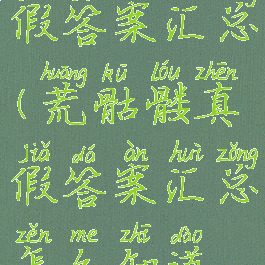 假答案汇总
huāng kū lóu zhēn
(荒骷髅真
jiǎ dá àn huì zǒng
假答案汇总
zěn me zhī dào
怎么知道